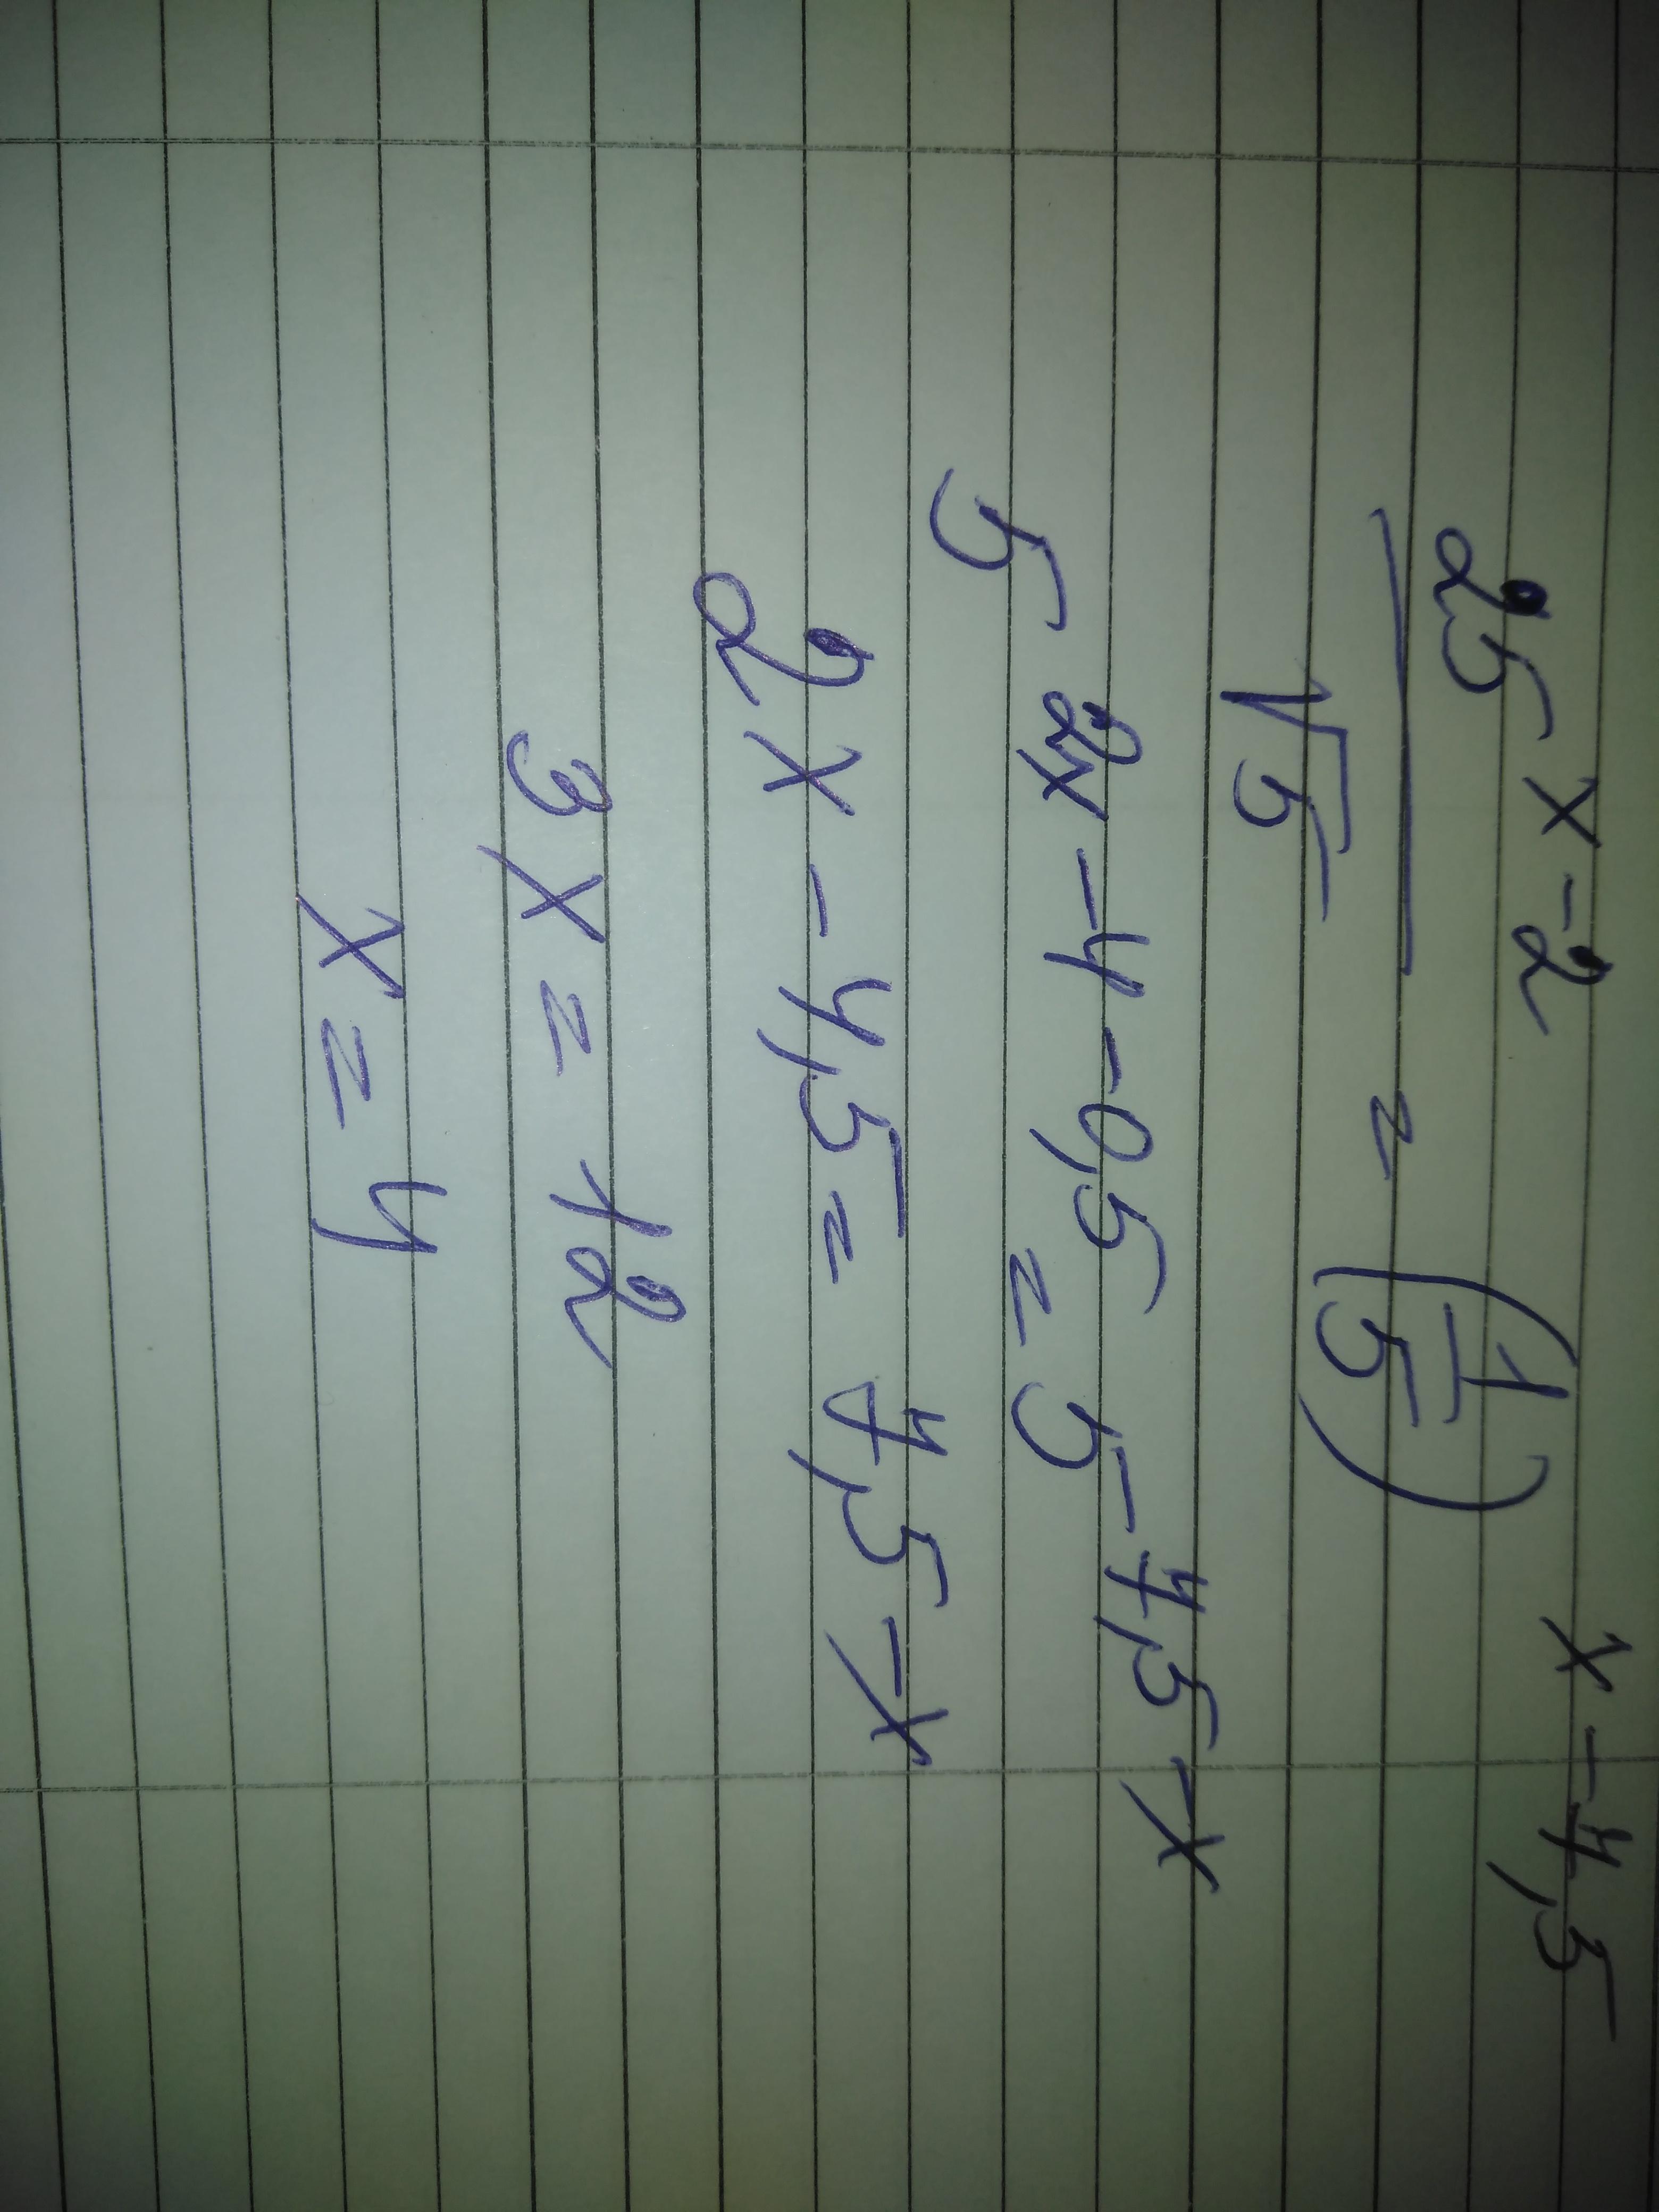 25^(x-2) / √5 = (1/5)^(x-7,5)
5^(2x-4-0,5) = 5^(7,5-x)
2x-4,5 = 7,5-x
3x = 12
x = 4